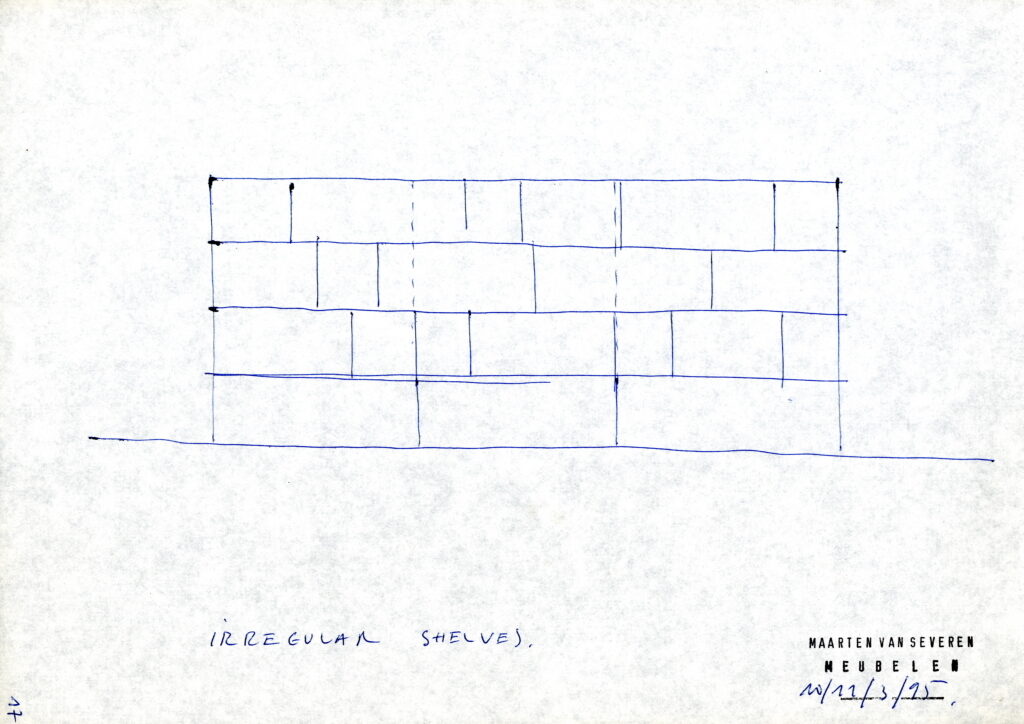 IRREGULAR SHELVES.
MAARTEN VAN SEVEREN
MEUBELEN
10/11/3/95.
17